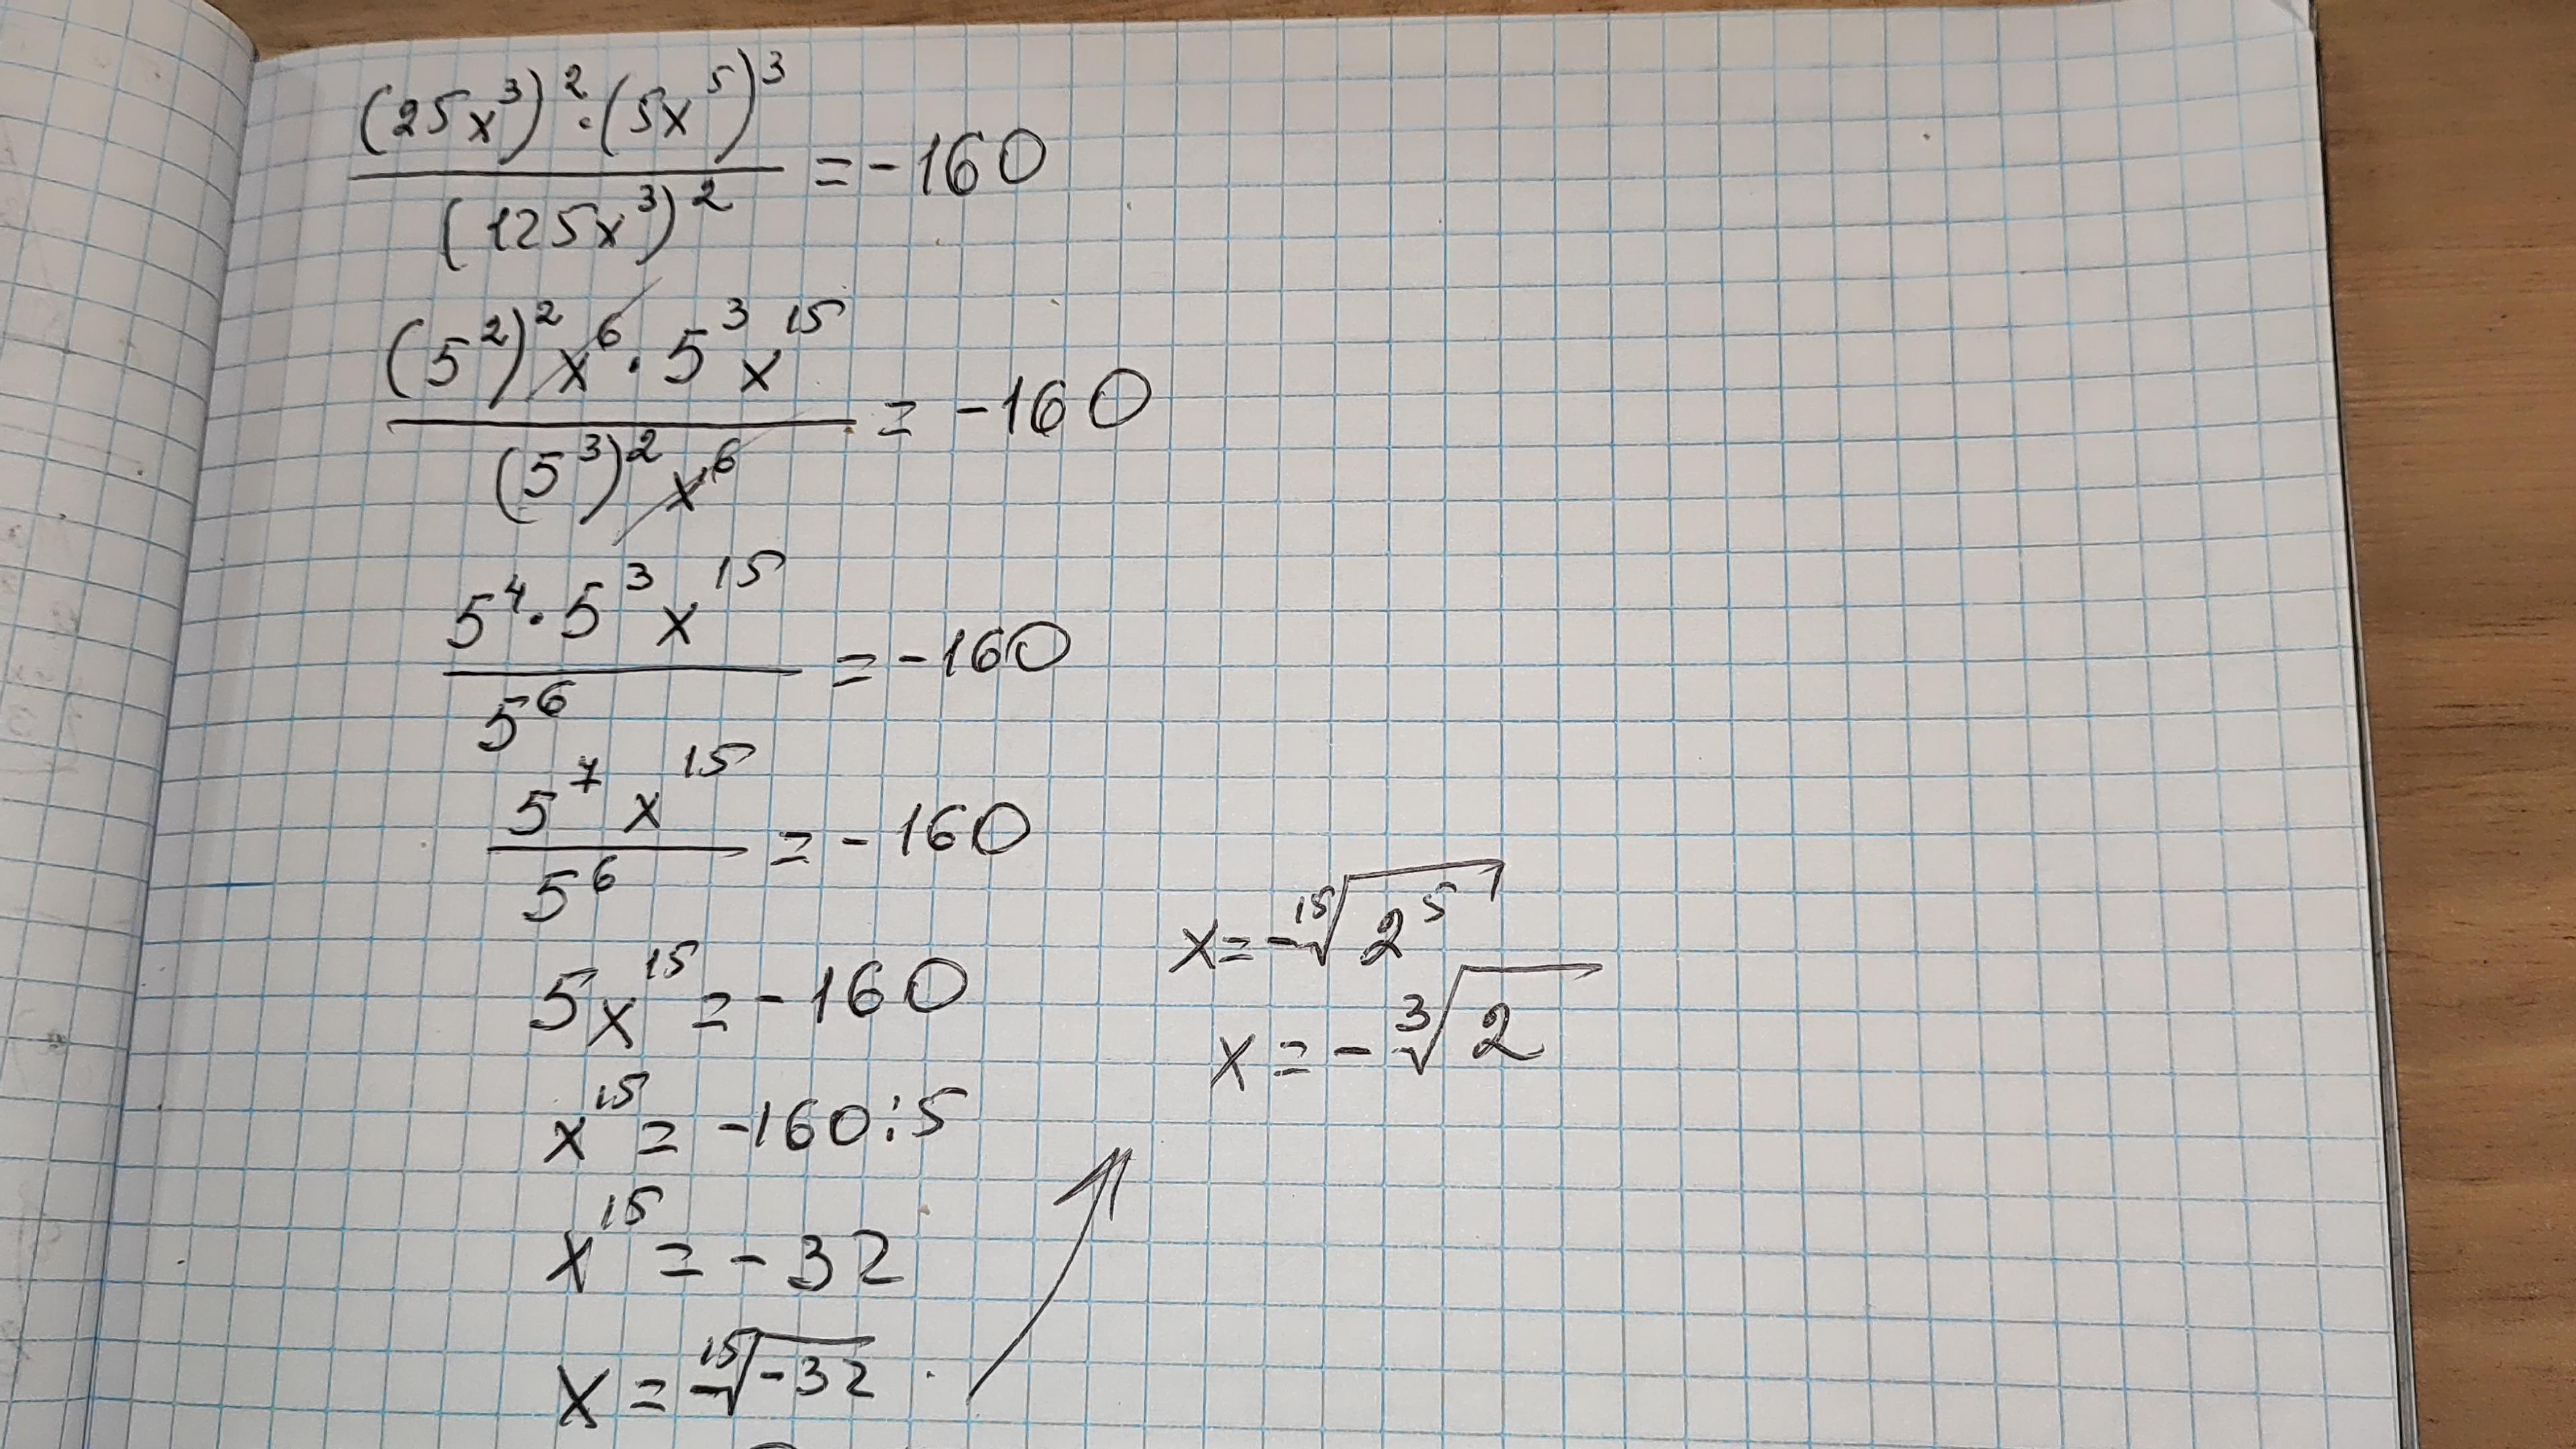 (25x³)²·(5x⁵)³ / (125x³)² = -160
(5²)²x⁶·5³x¹⁵ / (5³)²x⁶ = -160
5⁴·5³x¹⁵ / 5⁶ = -160
5⁷x¹⁵ / 5⁶ = -160
5x¹⁵ = -160
x¹⁵ = -160:5
x¹⁵ = -32
x = ¹⁵√-32
x = -¹⁵√2⁵
x = -³√2